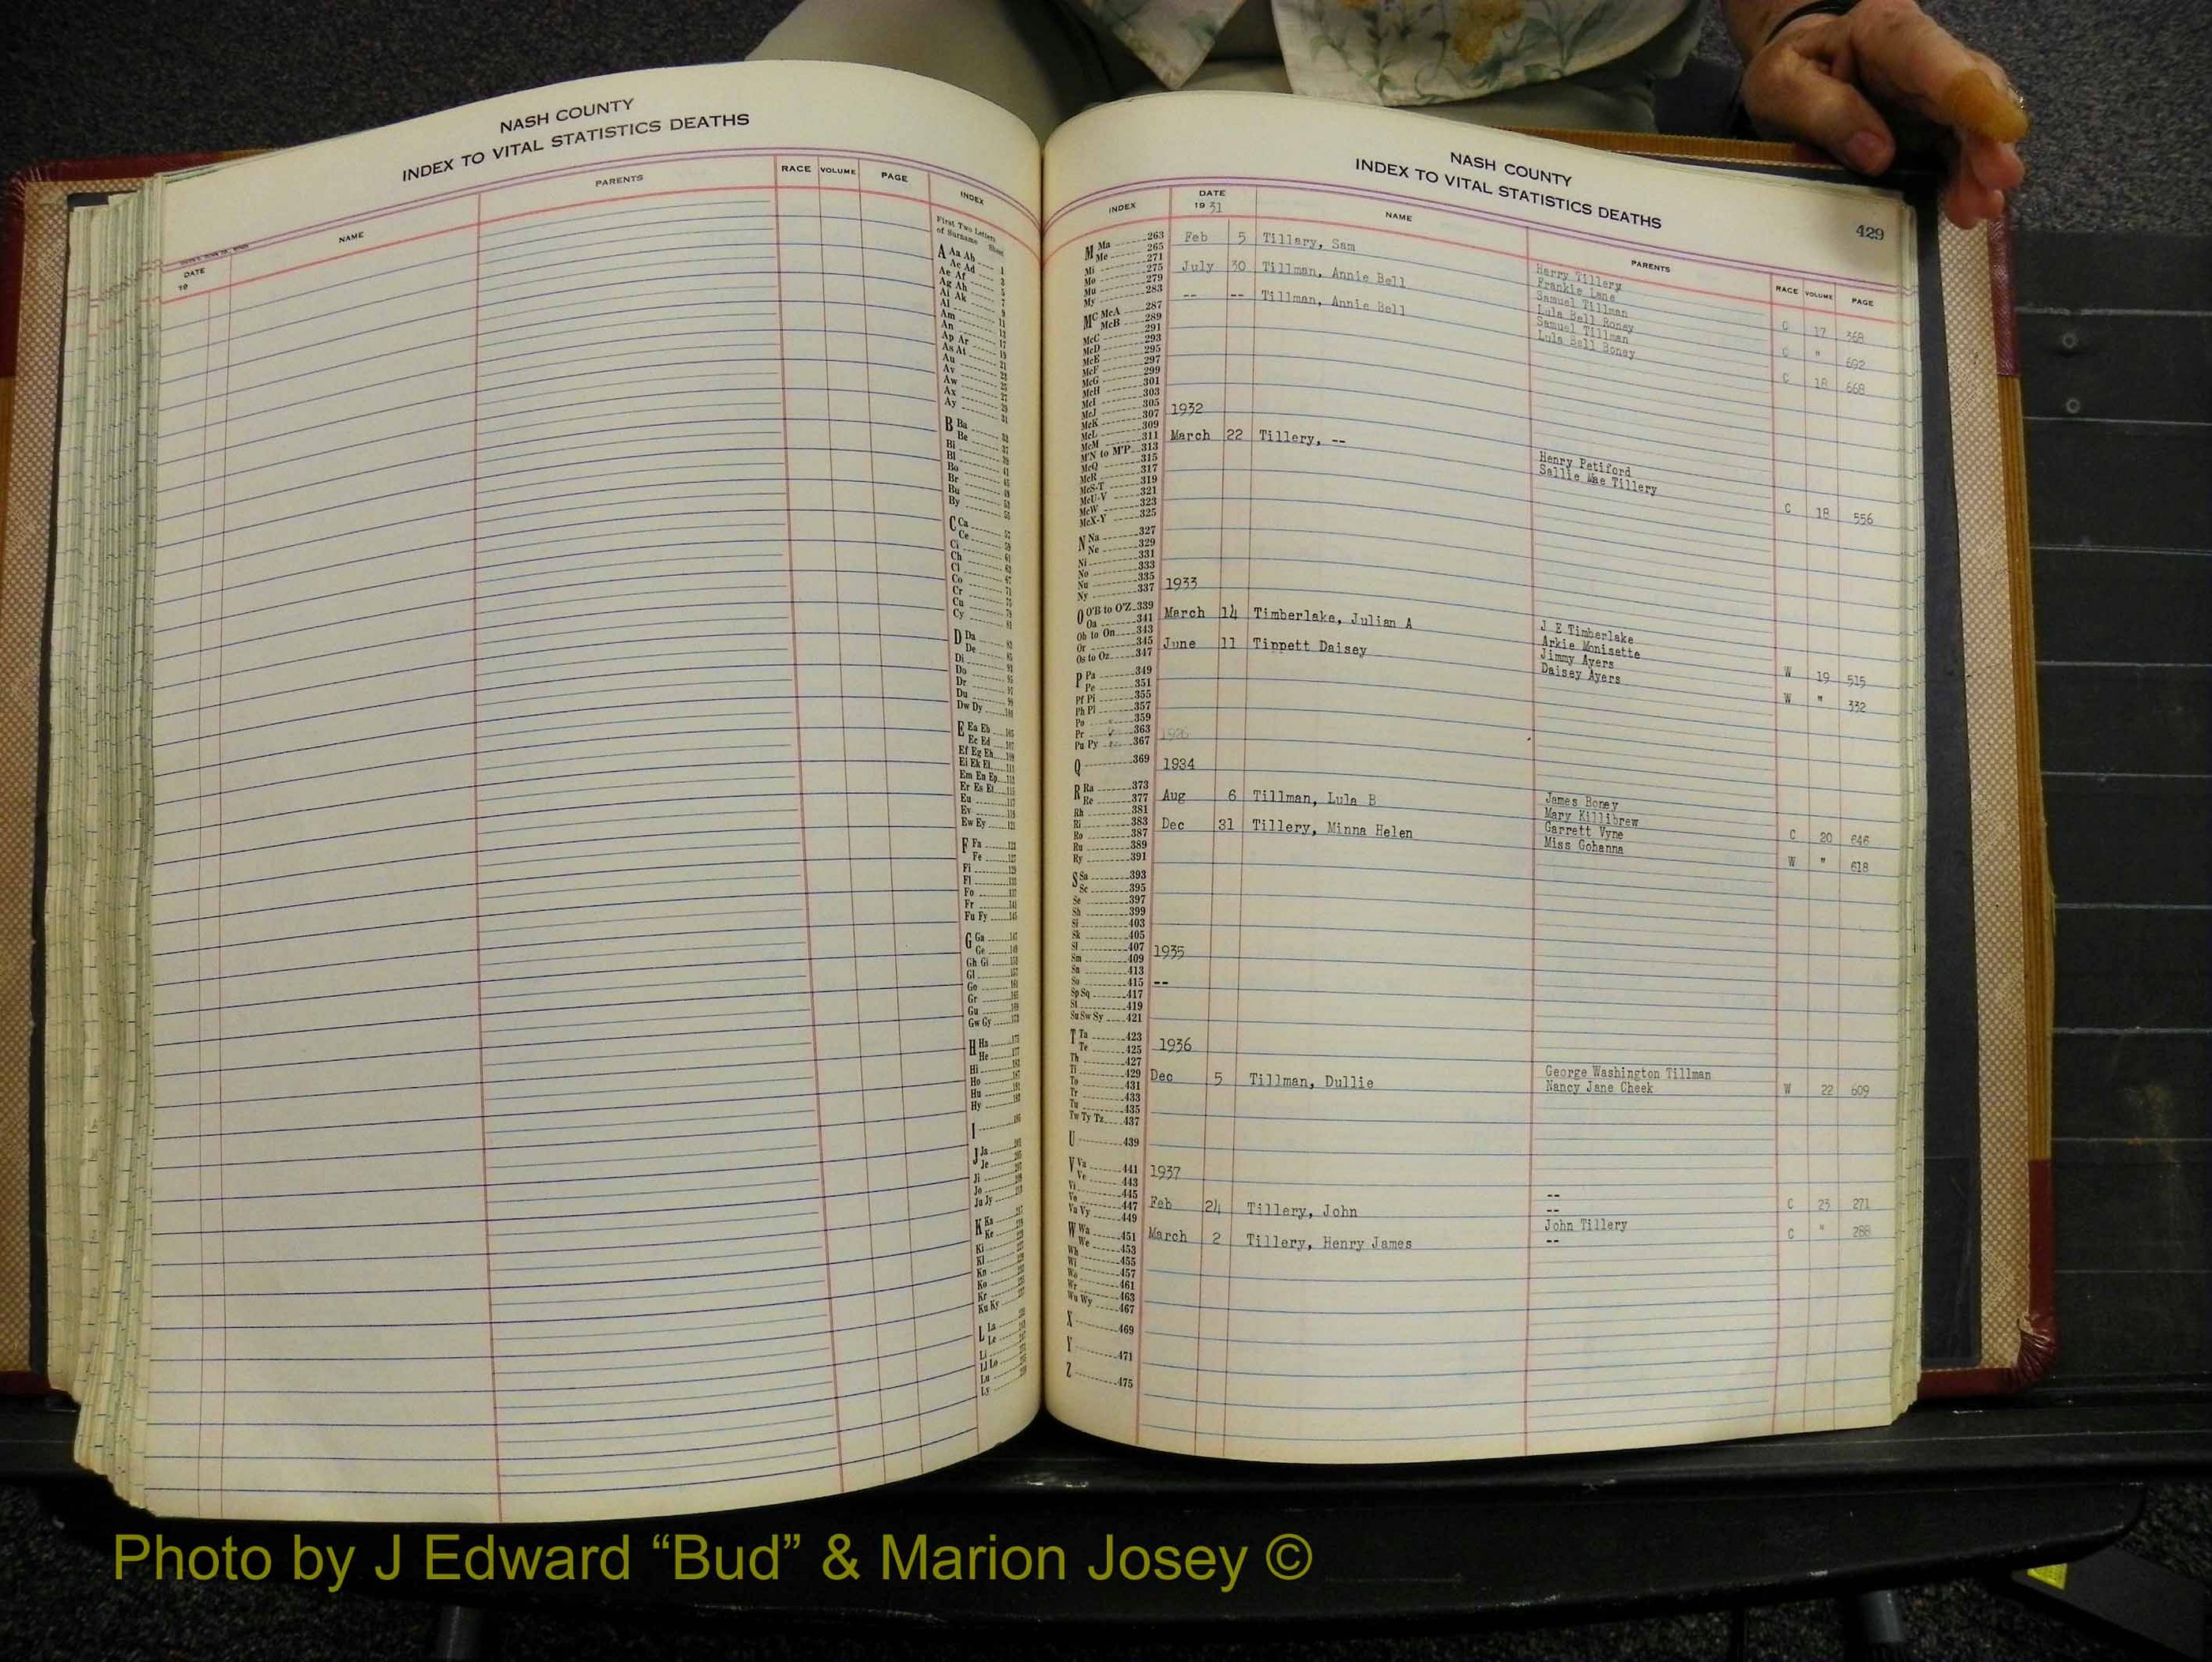 NASH COUNTY
INDEX TO VITAL STATISTICS DEATHS
DATE
19
NAME
PARENTS
RACE
VOLUME
PAGE
INDEX
First Two Letters
of Surname Sheet
A Aa Ab
Ac Ad
Ae Af
Ag Ah
Ai Ak
Al
Am
An
Ap Ar
As At
Au
Av
Aw
Ax
Ay
B Ba
Be
Bi
Bl
Bo
Br
Bu
By
C Ca
Ce
Ci
Ch
Cl
Co
Cr
Cu
Cy
D Da
De
Di
Do
Dr
Du
Dw Dy
E Ea Eb
Ec Ed
Ef Eg Eh
Ei Ek El
Em En Ep
Er Es Et
Eu
Ev
Ew Ey
F Fa
Fe
Fi
Fl
Fo
Fr
Fu Fy
G Ga
Ge
Gh Gi
Gl
Go
Gr
Gu
Gw Gy
H Ha
He
Hi
Ho
Hu
Hy
I
J Ja
Je
Ji
Jo
Ju Jy
K Ka
Ke
Ki
Kl
Kn
Ko
Kr
Ku Ky
L La
Le
Li
Ll Lo
Lu
Ly
NASH COUNTY
INDEX TO VITAL STATISTICS DEATHS
429
INDEX
DATE
19 31
NAME
PARENTS
RACE
VOLUME
PAGE
M Ma 263
Me 265
Mi 271
Mo 275
Mu 279
My 283
MC McA 287
McB 289
McC 291
McD 293
McE 295
McF 297
McG 299
McH 301
McI 303
McJ 305
McK 307
McL 309
McM 311
M'N to M'P 313
McQ 315
McR 317
McS-T 319
McU-V 321
McW 323
McX-Y 325
N Na 327
Ne 329
Ni 331
No 333
Nu 335
Ny 337
O O'B to O'Z 339
Oa 341
Ob to On 343
Or 345
Os to Oz 347
P Pa 349
Pe 351
Pf Pi 355
Ph Pl 357
Po 359
Pr 363
Pu Py 367
Q 369
R Ra 373
Re 377
Rh 381
Ri 383
Ro 387
Ru 389
Ry 391
S Sa 393
Sc 395
Se 397
Sh 399
Si 403
Sk 405
Sl 407
Sm 409
Sn 413
So 415
Sp Sq 417
St 419
Su Sw Sy 421
T Ta 423
Te 425
Th 427
Ti 429
To 431
Tr 433
Tu 435
Tw Ty Tz 437
U 439
V Va 441
Ve 443
Vi 445
Vo 447
Vu Vy 449
W Wa 451
We 453
Wh 455
Wi 457
Wo 461
Wr 463
Wu Wy 467
X 469
Y 471
Z 475
Feb 5 Tillery, Sam Harry Tillery C 17 368
Frankie Lane
July 30 Tillman, Annie Bell Samuel Tillman C " 692
Lula Bell Roney
-- -- Tillman, Annie Bell Samuel Tillman C 18 668
Lula Bell Boney
1932
March 22 Tillery, -- Henry Petiford C 18 556
Sallie Mae Tillery
1933
March 14 Timberlake, Julian A J E Timberlake W 19 515
Arkie Monisette
June 11 Tippett Daisey Jimmy Ayers W " 332
Daisey Ayers
1934
Aug 6 Tillman, Lula B James Boney C 20 646
Mary Killibrew
Dec 31 Tillery, Minna Helen Garrett Vyne W " 618
Miss Gohanna
1935
--
1936
Dec 5 Tillman, Dullie George Washington Tillman W 22 609
Nancy Jane Cheek
1937
Feb 24 Tillery, John -- C 23 271
--
March 2 Tillery, Henry James John Tillery C " 288
--
Photo by J Edward “Bud” & Marion Josey ©